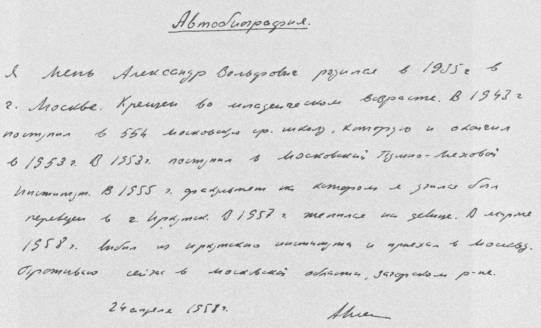 Автобиография.
Я Мень Александр Вольфович родился в 1935 г в
г. Москве. Крещен во младенческом возрасте. В 1943 г
поступил в 554 московскую ср. школу, которую и окончил
в 1953 г. В 1953 г. поступил в Московский Пушно-меховой
Институт. В 1955 г. факультет на котором я учился был
переведен в г. Иркутск. В 1957 г женился на девице. В марте
1958 г. выбыл из иркутского института и приехал в Москву.
Проживаю сейчас в московской области, загорском р-не.
24 апреля 1958 г.